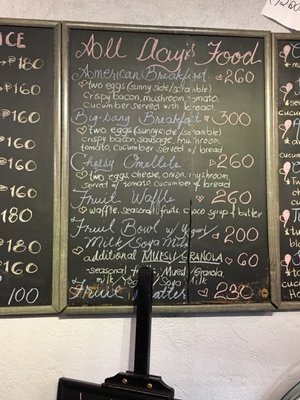 ICE
₱180
160
160
160
160
160
180
180
160
100
All Day's Food
American Breakfast 260
two eggs (sunny side/scramble)
crispy bacon, mushroom, tomato,
cucumber served with bread
Big-bang Breakfast 300
two eggs (sunny side/scramble)
crispy bacon, sausage, mushroom,
tomato, cucumber served w/ bread
Chessy Omellets 260
two eggs, cheese, onion, mushroom,
served w/ tomato cucumber & bread
Fruit Waffle 260
waffle, seasonal fruits, choco syrup & butter
Fruit Bowl w/ Yogurt 200
Milk / Soya Milk
additional MUESLY GRANOLA 60
seasonal Granola
Milk
Fruit Platter 230